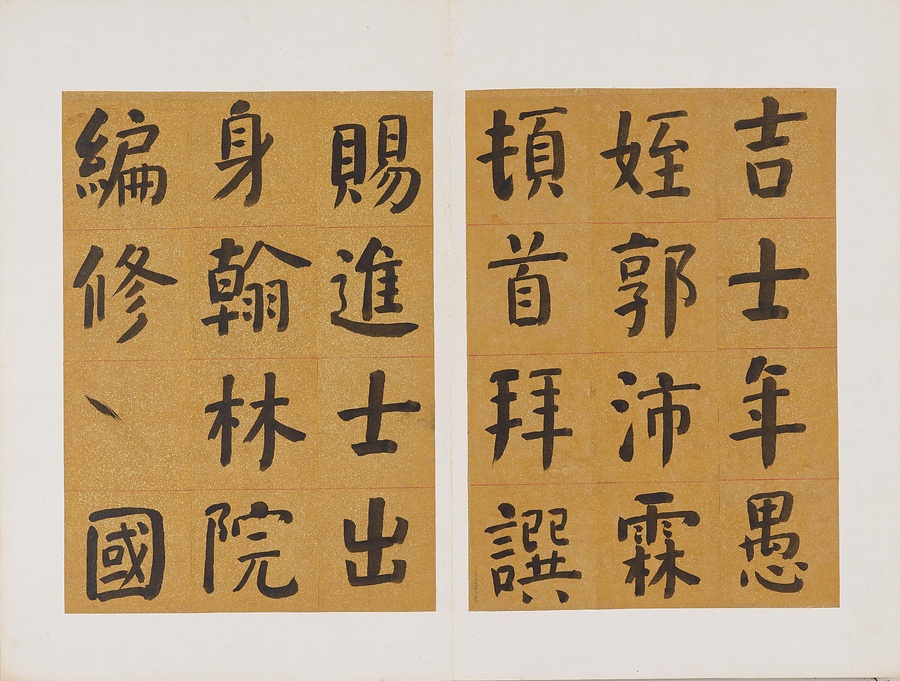 吉士年愚
姪郭沛霖
頓首拜譔
賜進士出
身翰林院
編修國